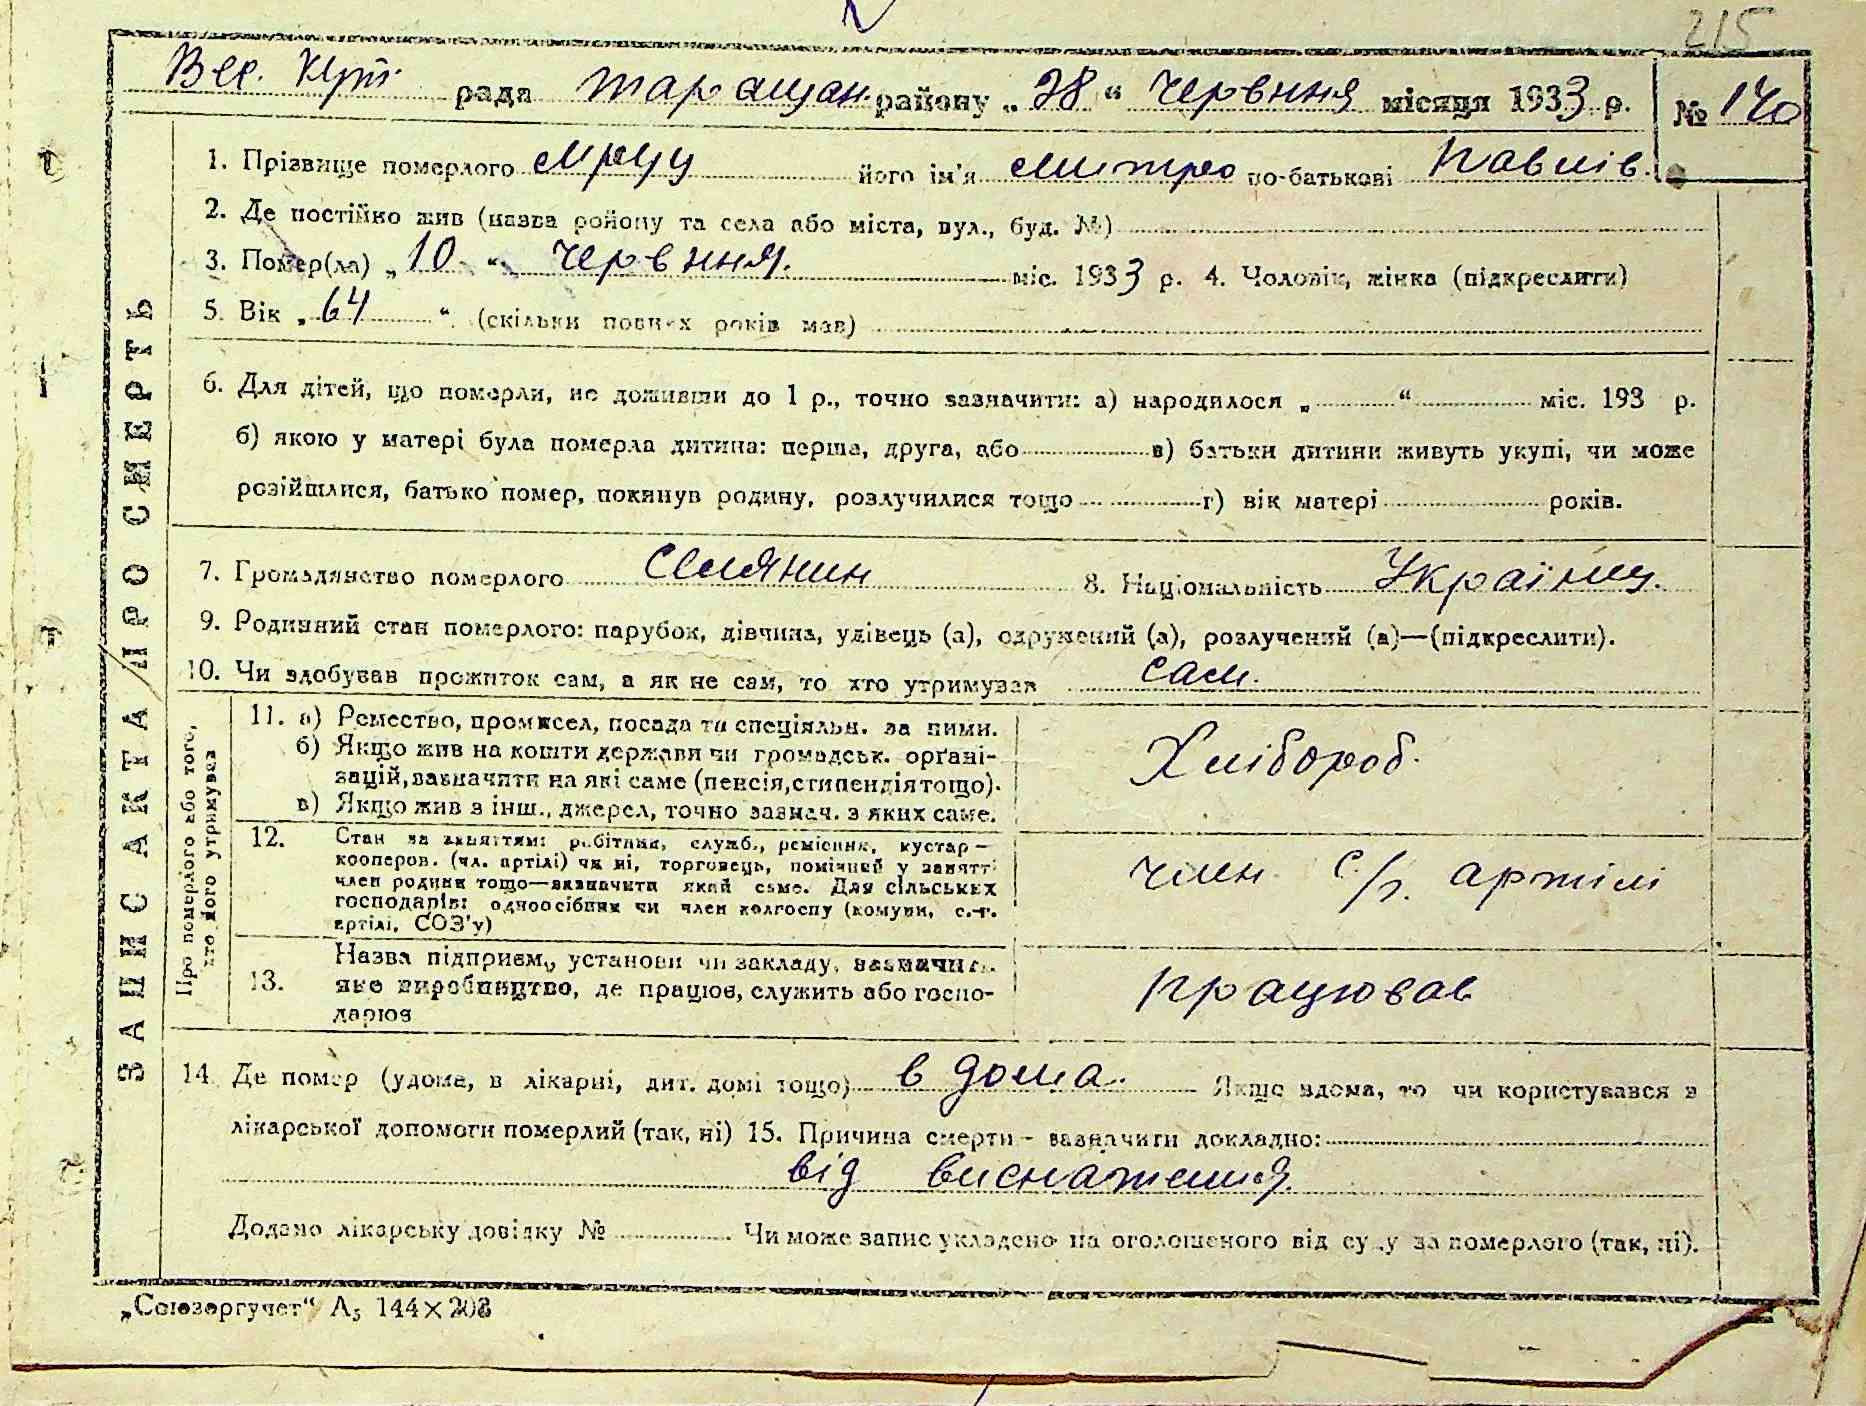 215
Вес. Кут. рада Таращан. району „28“ червння місяця 1933 р. № 140
1. Прізвище померлого Мруц його ім'я Митро по-батькові Павлів.
2. Де постійно жив (назва ройону та села або міста, вул., буд. №)
3. Помер(ла) „10“ червння. міс. 1933 р. 4. Чоловік, жінка (підкреслити)
5. Вік „64“ (скільки повних років мав)
6. Для дітей, що померли, не доживши до 1 р., точно зазначити: а) народилося „ “ міс. 193 р.
б) якою у матері була померла дитина: перша, друга, або в) батьки дитини живуть укупі, чи може
розійшлися, батько помер, покинув родину, розлучилися тощо г) вік матері років.
7. Громадянство померлого селянин 8. Національність Україниц.
9. Родинний стан померлого: парубок, дівчина, удівець (а), одружений (а), розлучений (а)—(підкреслити).
10. Чи здобував прожиток сам, а як не сам, то хто утримував сам.
ЗАПИС АКТА ПРО СМЕРТЬ
Про померлого або того,
хто його утримував
11. а) Ремество, промисел, посада та спеціяльн. за ними.
б) Якщо жив на кошти держави чи громадськ. органі-
зацій, зазначити на які саме (пенсія, стипендія тощо).
в) Якщо жив з інш., джерел, точно зазнач. з яких саме.
Хлібороб.
12. Стан за заняттям: робітник, служб., ремісник, кустар—
кооперов. (чл. артілі) чи ні, торговець, помічний у занятті
член родини тощо—зазначити який саме. Для сільських
господарів: одноосібник чи член колгоспу (комуни, с.-г.
артілі, СОЗ'у)
член с/г. артілі
13. Назва підприєм., установи чи закладу, зазначит.
яке виробництво, де працює, служить або госпо-
дарює
працював
14. Де помер (удома, в лікарні, дит. домі тощо) в дома. Якщо вдома, то чи користувався з
лікарської допомоги померлий (так, ні) 15. Причина смерти - зазначити докладно:
від виснаження.
Додано лікарську довідку № Чи може запис укладено на оголошеного від суду за померлого (так, ні).
„Союзоргучет“ А5 144×203